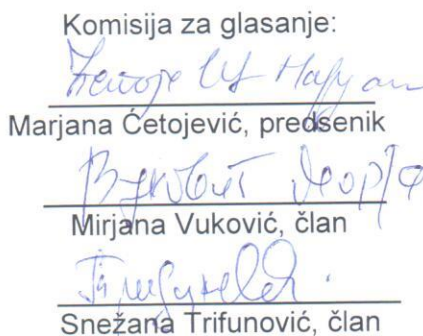 Komisija za glasanje:
Marjana Ćetojević, predsenik
Вуковић
Mirjana Vuković, član
Snežana Trifunović, član